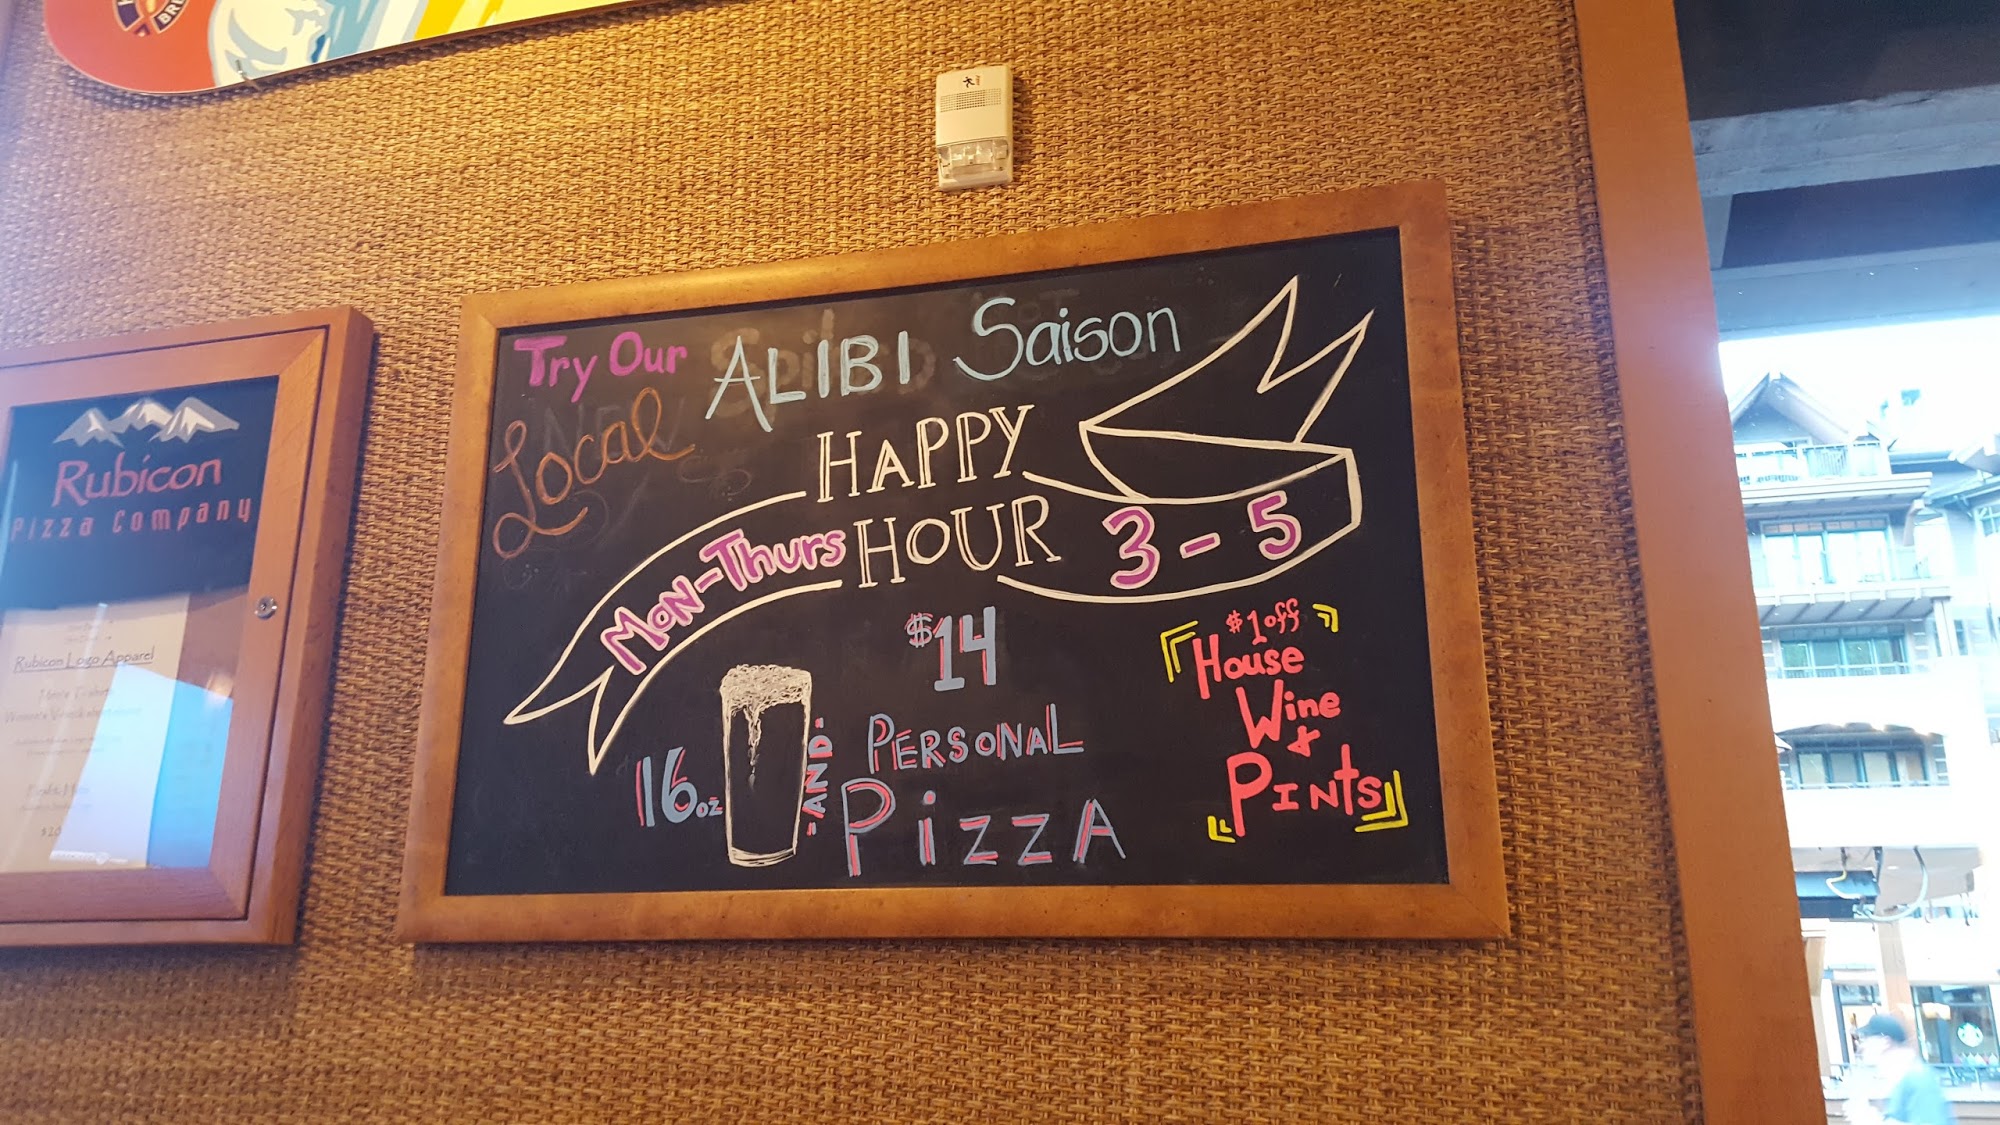 Try Our
Local
ALIBI Saison
HAPPY
HOUR
Mon-Thurs
3 - 5
$14
16oz
AND
PERSONAL
PIZZA
$1 off
House
Wine
&
PINTS
Rubicon
Pizza Company
Rubicon Logo Apparel